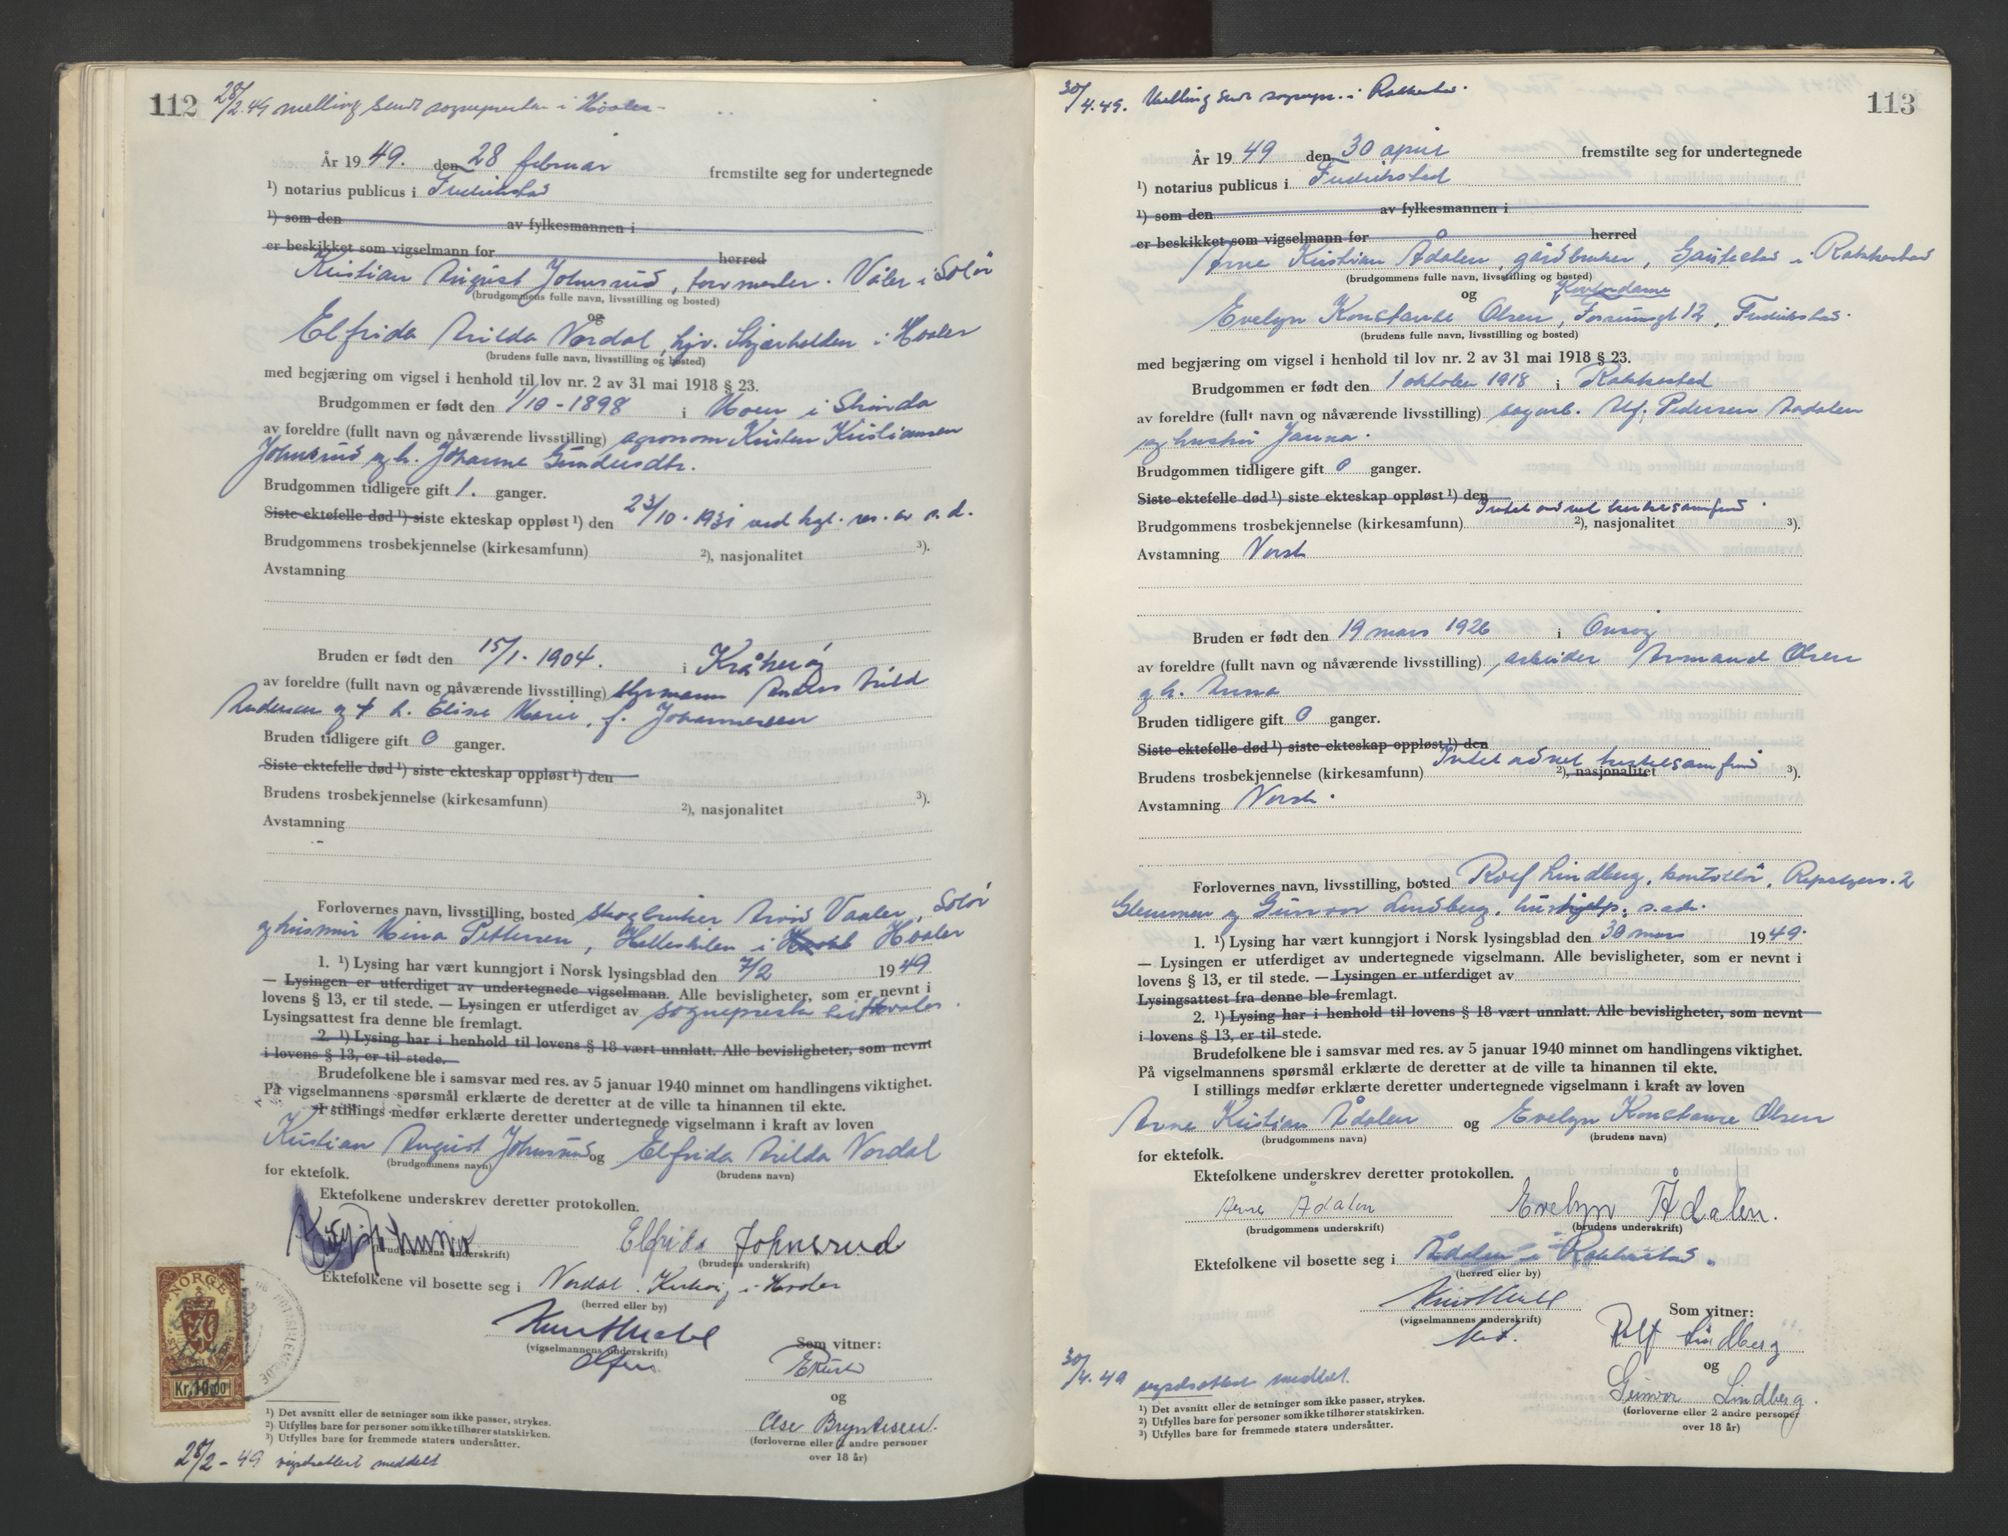 112 28/2.49 melling sendt sognepresten i Hvaler.
År 19 49. den 28 februar fremstilte seg for undertegnede
¹) notarius publicus i Fredrikstad
¹) som den av fylkesmannen i
er beskikket som vigselmann for herred
Kristian August Johnsrud, torvmester. Våler i Solør
(brudgommens fulle navn, livsstilling og bosted)
og
Elfrida Arilda Nordal, hjv. Skjærhalden i Hvaler
(brudens fulle navn, livsstilling og bosted)
med begjæring om vigsel i henhold til lov nr. 2 av 31 mai 1918 § 23.
Brudgommen er født den 1/10-1898 i Moen i Strinda
av foreldre (fullt navn og nåværende livsstilling) agronom Kristen Kristiansen
Johnsrud og h. Johanne Gundersdtr.
Brudgommen tidligere gift 1. ganger.
Siste ektefelle død ¹) siste ekteskap oppløst ¹) den 23/10.1931 ved kgl. res. av s. d.
Brudgommens trosbekjennelse (kirkesamfunn) ²), nasjonalitet ³).
Avstamning
Bruden er født den 15/1-1904. i Kråkerøy
av foreldre (fullt navn og nåværende livsstilling) styrmann Anders Arild
Andersen og h. Elise Marie, f. Johannessen
Bruden tidligere gift 0 ganger.
Siste ektefelle død ¹) siste ekteskap oppløst ¹) den
Brudens trosbekjennelse (kirkesamfunn) ²), nasjonalitet ³).
Avstamning
Forlovernes navn, livsstilling, bosted skogbruker Arvid Vaaler, Solør
og husmor Mena Pettersen, Helleskilen i Hvaler
1. ¹) Lysing har vært kunngjort i Norsk lysingsblad den 7/2 19 49
— Lysingen er utferdiget av undertegnede vigselmann. Alle bevisligheter, som er nevnt i
lovens § 13, er til stede. — Lysingen er utferdiget av sognepresten i Hvaler.
Lysingsattest fra denne ble fremlagt.
2. ¹) Lysing har i henhold til lovens § 18 vært unnlatt. Alle bevisligheter, som nevnt
i lovens § 13, er til stede.
Brudefolkene ble i samsvar med res. av 5 januar 1940 minnet om handlingens viktighet.
På vigselmannens spørsmål erklærte de deretter at de ville ta hinannen til ekte.
I stillings medfør erklærte deretter undertegnede vigselmann i kraft av loven
Kristian August Johnsrud og Elfrida Arilda Nordal
(brudgommens navn) (brudens navn)
for ektefolk.
Ektefolkene underskrev deretter protokollen.
Elfrida Johnsrud
(brudgommens underskrift) (brudens underskrift)
Ektefolkene vil bosette seg i Nordal. Kirkøy i Hvaler
(herred eller by)
(vigselmannens underskrift)
Som vitner:
og
Else Bryntesen.
(forloverne eller 2 andre personer
over 18 år)
NORGE
Kr. 10,00
¹) Det avsnitt eller de setninger som ikke passer, strykes.
²) Utfylles bare for personer som ikke tilhører statskirken.
³) Utfylles bare for fremmede staters undersåtter.
28/2-49 vigselsattest meddelt
30/4.49. Melling sendt sognepr. i Rakkestad. 113
År 19 49 den 30 april fremstilte seg for undertegnede
¹) notarius publicus i Fredrikstad
¹) som den av fylkesmannen i
er beskikket som vigselmann for herred
Arne Kristian Ådalen, gårdbruker, Gautestad i Rakkestad
(brudgommens fulle navn, livsstilling og bosted)
og Kontordame
Evelyn Konstanse Olsen, Forsumsgt 12, Fredrikstad.
(brudens fulle navn, livsstilling og bosted)
med begjæring om vigsel i henhold til lov nr. 2 av 31 mai 1918 § 23.
Brudgommen er født den 1 oktober 1918 i Rakkestad
av foreldre (fullt navn og nåværende livsstilling) sagarb. Alf Pedersen Aadalen
og hustru Janna.
Brudgommen tidligere gift 0 ganger.
Siste ektefelle død ¹) siste ekteskap oppløst ¹) den
Brudgommens trosbekjennelse (kirkesamfunn) Intet ordnet kirkesamfund. ²), nasjonalitet ³).
Avstamning Norsk
Bruden er født den 19 mars 1926 i Onsøy
av foreldre (fullt navn og nåværende livsstilling) arbeider Armand Olsen
og h. Anna
Bruden tidligere gift 0 ganger.
Siste ektefelle død ¹) siste ekteskap oppløst ¹) den
Brudens trosbekjennelse (kirkesamfunn) Intet ordnet kirkesamfund ²), nasjonalitet ³).
Avstamning Norsk.
Forlovernes navn, livsstilling, bosted Rolf Lindberg, kontorist, 2
Glemmen og Gunvor Lindberg, s. adr.
1. ¹) Lysing har vært kunngjort i Norsk lysingsblad den 30 mars 19 49.
— Lysingen er utferdiget av undertegnede vigselmann. Alle bevisligheter, som er nevnt i
lovens § 13, er til stede. — Lysingen er utferdiget av
Lysingsattest fra denne ble fremlagt.
2. ¹) Lysing har i henhold til lovens § 18 vært unnlatt. Alle bevisligheter, som nevnt
i lovens § 13, er til stede.
Brudefolkene ble i samsvar med res. av 5 januar 1940 minnet om handlingens viktighet.
På vigselmannens spørsmål erklærte de deretter at de ville ta hinannen til ekte.
I stillings medfør erklærte deretter undertegnede vigselmann i kraft av loven
Arne Kristian Ådalen og Evelyn Konstanse Olsen
(brudgommens navn) (brudens navn)
for ektefolk.
Ektefolkene underskrev deretter protokollen.
Arne Ådalen Evelyn Ådalen.
(brudgommens underskrift) (brudens underskrift)
Ektefolkene vil bosette seg i Ådalen i Rakkestad.
(herred eller by)
(vigselmannens underskrift)
Som vitner:
Rolf Lindberg
og
Gunvor Lindberg.
(forloverne eller 2 andre personer
over 18 år)
30/4.49 vigselsattest meddelt
¹) Det avsnitt eller de setninger som ikke passer, strykes.
²) Utfylles bare for personer som ikke tilhører statskirken.
³) Utfylles bare for fremmede staters undersåtter.